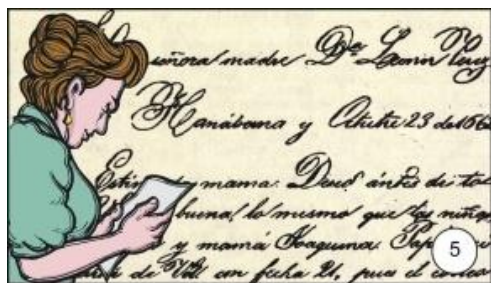 señora madre Dª Leonor Perez
Hanábana y Octubre 23 de 186
mama: Deseo ántes de to
buena, lo mismo que las niñas
y mamá Joaquina. Pap
de Vd. con fecha 21, pues el correo
5